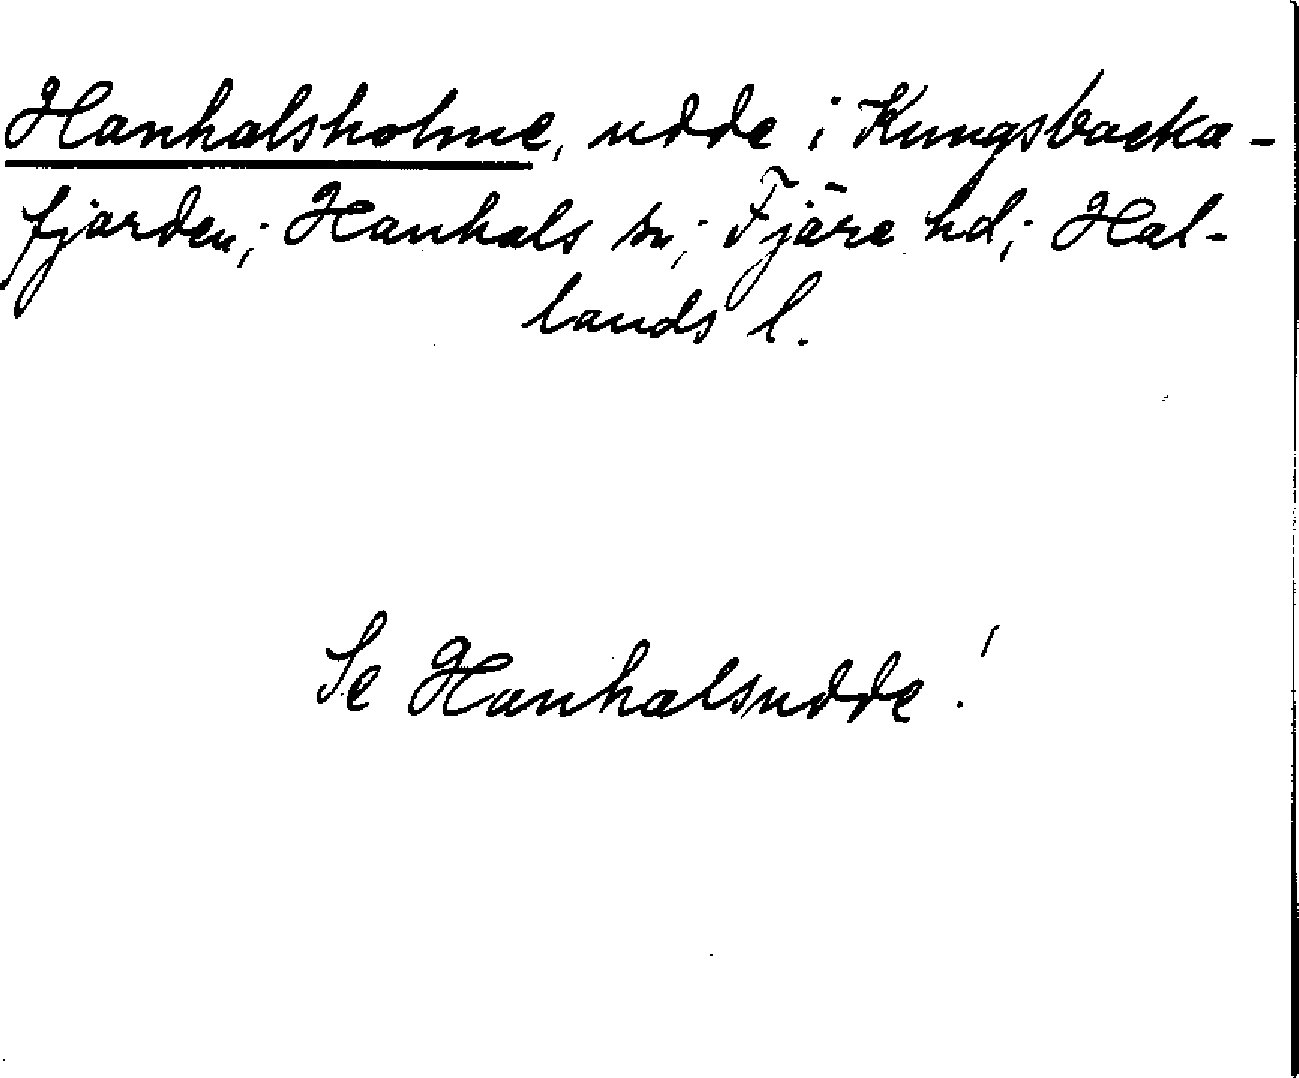 Hanhalsholme, udde i Kungsbacka-
fjorden; Hanhals sn; Fjäre hd; Hal-
lands l.
Se Hanhalsudde!